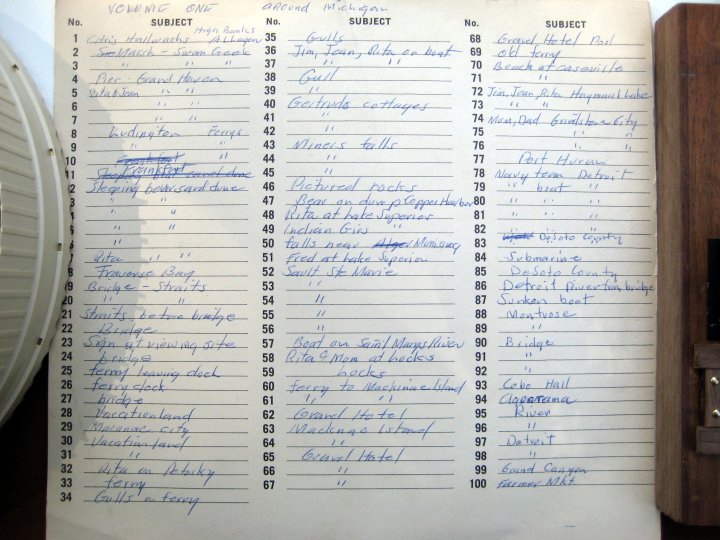 VOLUME ONE around Michigan
No. SUBJECT
High Banks
1 Chris Hallwachs Allegan
2 Marsh - Swan Creek
3 " "
4 Pier - Grand Haven
5 Rita & Jean " "
6 " "
7 " "
8 Ludington Ferrys
9 " "
10 Frankfort "
11 Frankfort
Sleeping bear sand dune
2 Sleeping bear sand dune
3 " "
4 " "
5 "
6 "
7 Rita " "
8 Traverse Bay
9 Bridge - Straits
20 " "
21 Straits before bridge
22 Bridge
23 Sign at viewing site
24 bridge
25 ferry leaving dock
26 ferry dock
27 bridge
28 Vacationland
29 Macanac City
30 Vacationland
31 "
32 Rita on Petosky
33 ferry
34 Gulls on ferry
No. SUBJECT
35 Gulls
36 Jim, Jean, Rita on boat
37 " "
38 Gull
39 "
40 Gertrude cottages
41 " "
42 " "
43 Miners falls
44 "
45 "
46 Pictured rocks
47 Bear on dump Copper Harbor
48 Rita at Lake Superior
49 Indian Girs "
50 falls near Munising
51 Fred at Lake Superior
52 Sault Ste Marie
53 "
54 "
55 "
56 "
57 Boat on Saint Marys River
58 Rita & Mum at Locks
59 Locks
60 Ferry to Mackinac Island
61 " " "
62 Grand Hotel
63 Macknac Island
64 "
65 Grand Hotel
66 "
67 "
No. SUBJECT
68 Grand Hotel Pool
69 old ferry
70 Beach at caseville
71 "
72 Jim, Jean, Rita Haymarsh Lake
73 "
74 Mum, Dad Grindstone City
75 " "
76 "
77 Port Huron
78 Navy team Detroit
79 " boat "
80 " "
81 " "
82 " "
83 DeSoto County
84 Submarine
85 DeSoto County
86 Detroit River from bridge
87 Sunken boat
88 Montrose
89 "
90 Bridge
91 "
92 "
93 Cobo Hall
94
95 River
96 "
97 Detroit
98 "
99 Grand Canyon
100 Farmer Mkt.